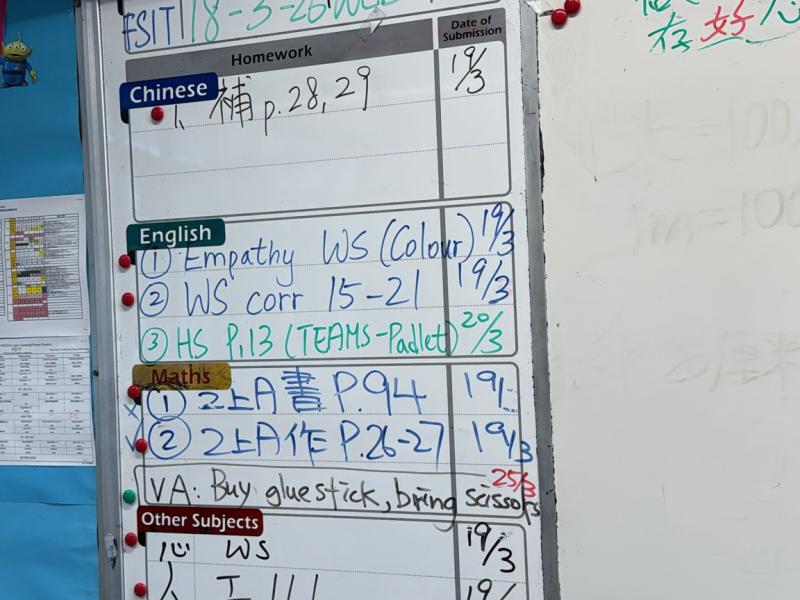 FSIT 18-3-26 Wed
Homework
Date of Submission
Chinese
補 p.28,29 19/3
English
① Empathy WS (Colour) 19/3
② WS corr 15-21 19/3
③ HS P.13 (TEAMS-Padlet) 20/3
Maths
① 2上A書 P.94 19/
② 2上A作 P.26-27 19/3
VA: Buy glue stick, bring scissors 25/3
Other Subjects
心 WS 19/3
人 工 19/
在好心